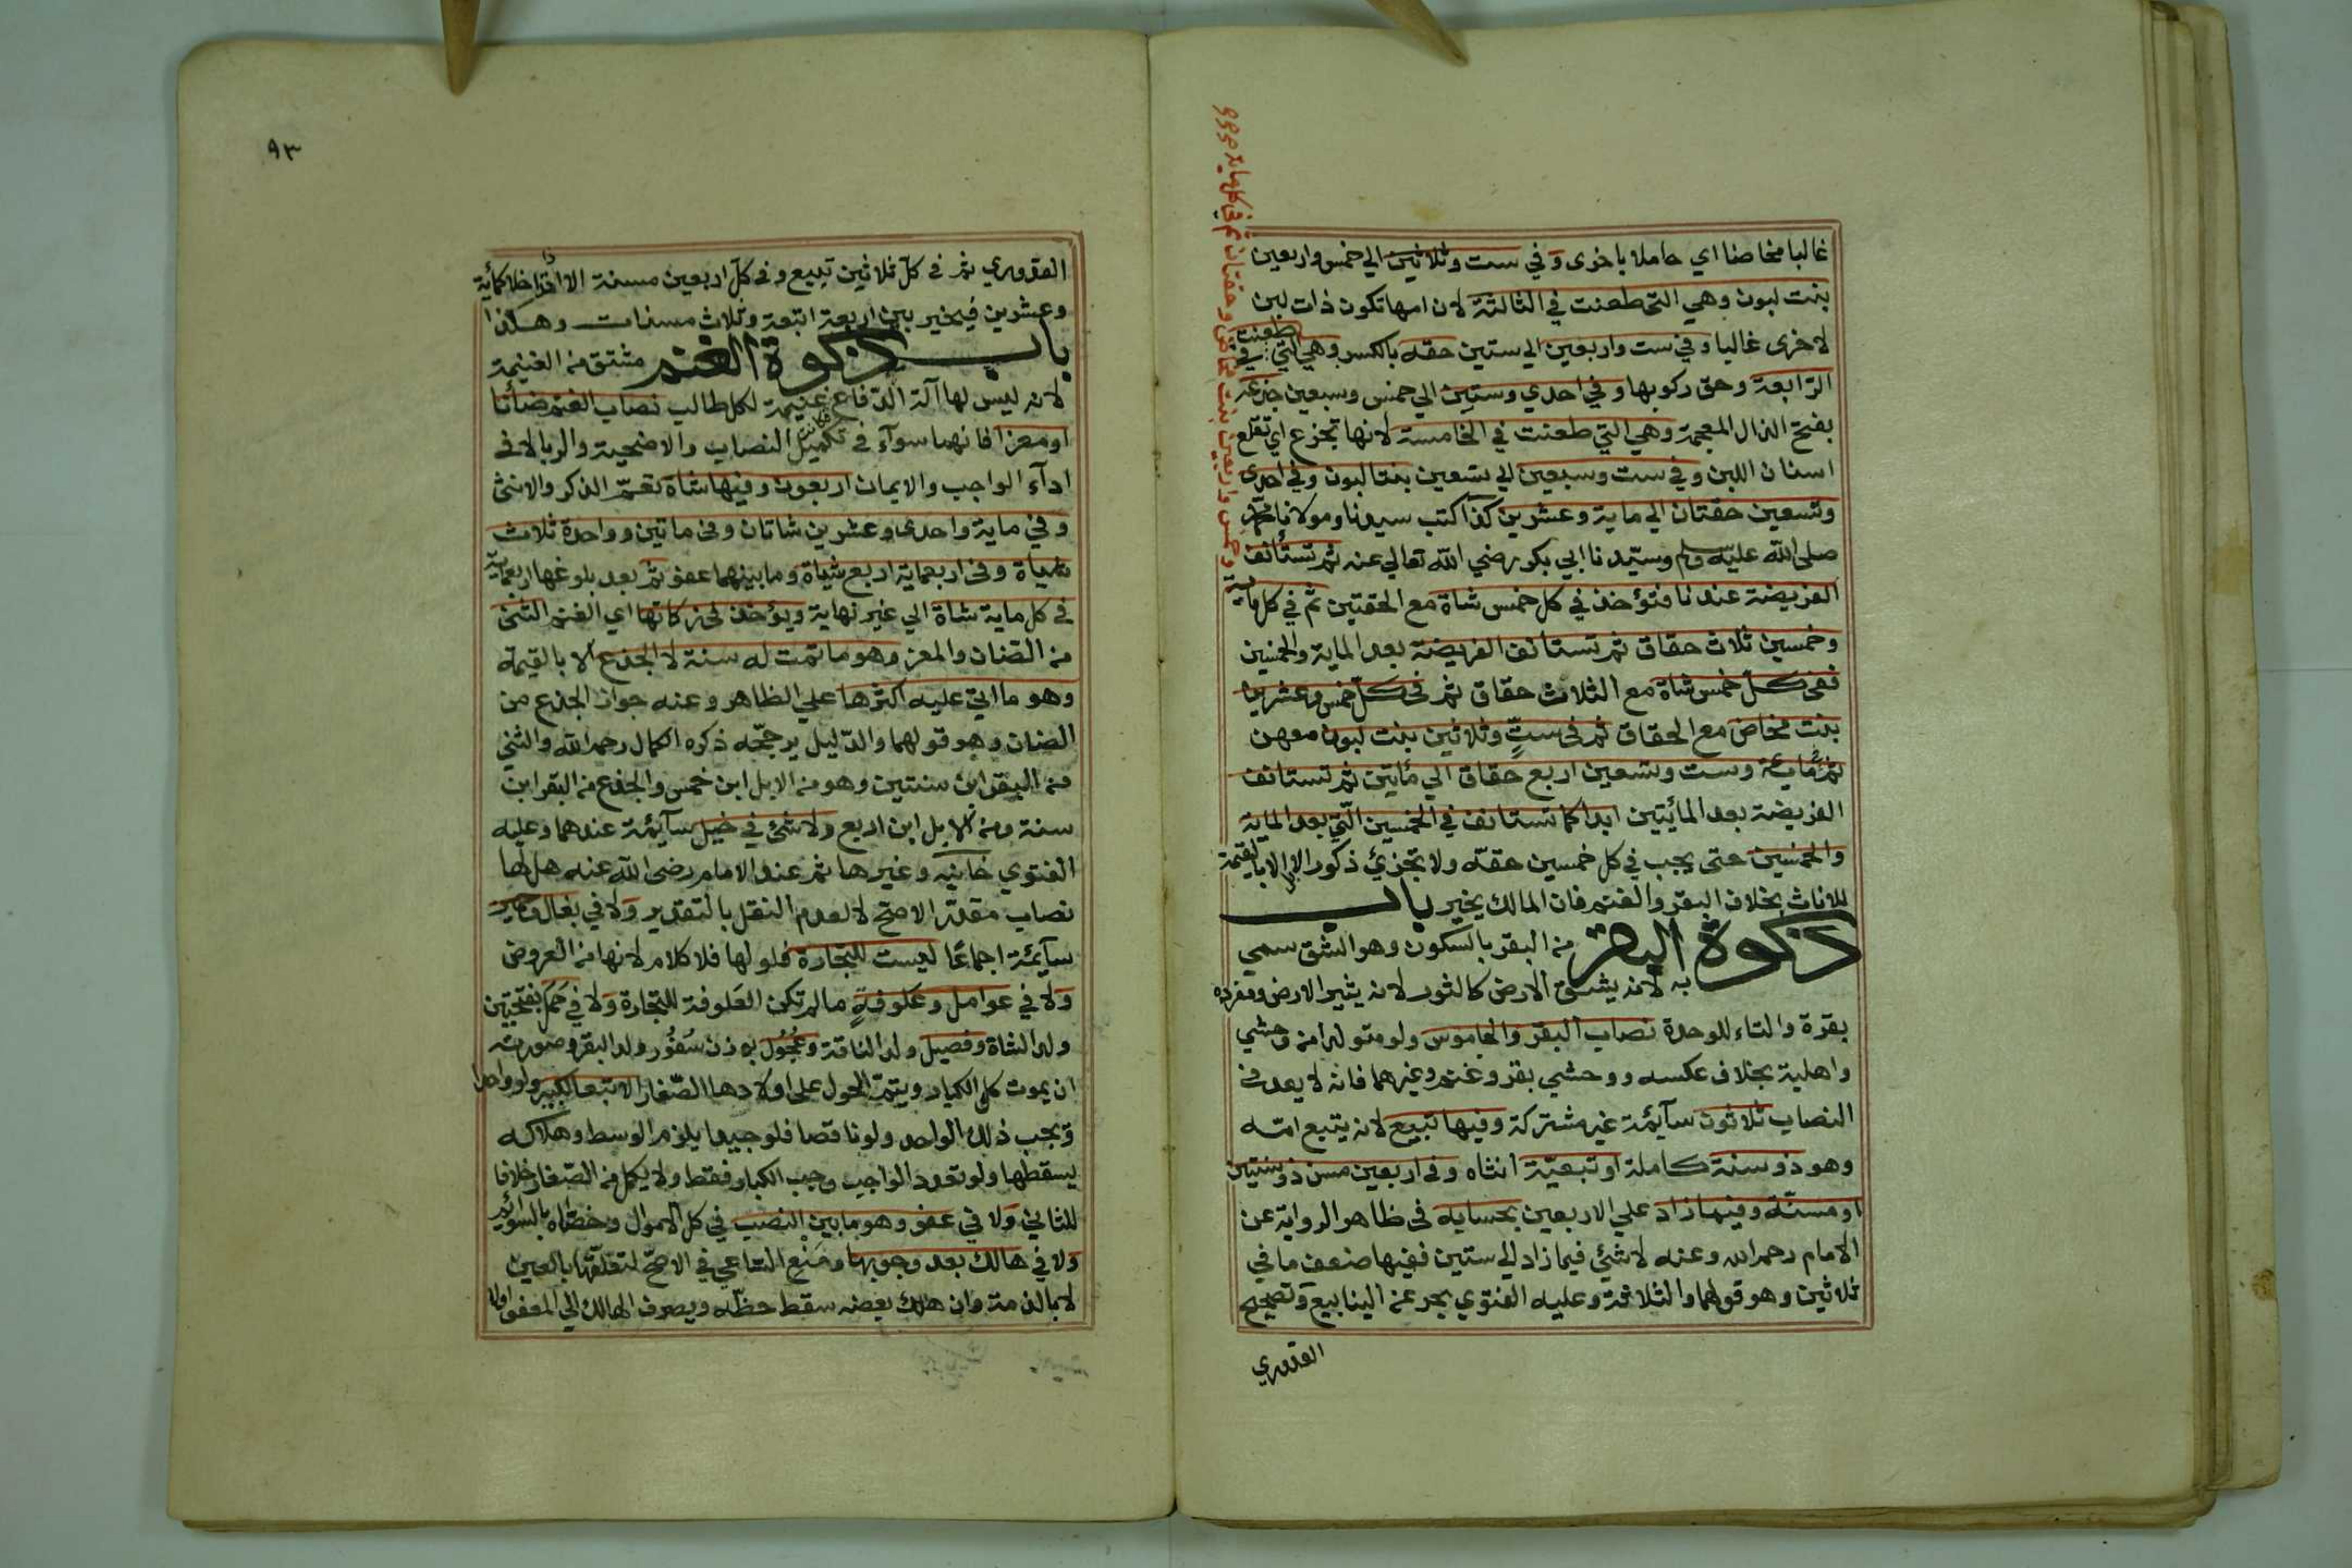 غالبا مخاضا اي حاملا باخرى وفي ست وثلاثين الي خمس واربعين
بنت لبون وهي التي طعنت في الثالثة لان امها تكون ذات لبن
لاخرى غالبا وفي ست واربعين الي ستين حقه بالكسر وهي التي طعنت في
الرّابعة وحق ركوبها وفي احدي وستين الي خمس وسبعين جذعه
بفتح الذال المعجمة وهي التي طعنت في الخامسة لانها تجزع اي تقلع
اسنان اللبن وفي ست وسبعين الي تسعين بنتا لبون وفي احدي
وتسعين حقتان الي ماية وعشرين كذا كتب سيدنا ومولانا محمّد
صلى الله عليه وسلم وسيّدنا ابي بكر رضي الله تعالي عنه ثم تستأنف
الفريضة عندنا فتؤخذ في كل خمس شاة مع الحقتين ثم في كل ماية
وخمس واربعين بنت مخاض وحقتان ثم في كل ماية
وخمسين ثلاث حقاق ثم تستانف الفريضة بعد الماية والخمسين
ففي كلّ خمس شاة مع الثلاث حقاق ثم في كلّ خمس وعشرين
بنت مخاض مع الحقاق ثم في ستٍّ وثلاثين بنت لبون معهن
ثم في ماية وست وتسعين اربع حقاق الي مأيتين ثم تستانف
الفريضة بعد المائيتين ابدا كما تستانف في الخمسين التّي بعد الماية
والخمسين حتى يجب في كل خمسين حقّه ولا تجزئ ذكور الابل الا بالقيمة
للاناث بخلاف البقر والغنم فان المالك يخير باب
زكوة البقر من البقر بالسكون وهو الشق سمي
به لانه يشق الارض كالثور لانه يثير الارض ومفرده
بقرة والتاء للوحدة نصاب البقر والجاموس ولو متولدا من وحشي
واهلية بخلاف عكسه ووحشي بقر وغنم وغيرهما فانه لا يعد في
النصاب ثلاثون سآئمة غير مشتركة وفيها تبيع لانه يتبع امّه
وهو ذو سنة كاملة او تبعيّة انثاه وفي اربعين مسن ذو سنتين
او مسنّة وفيما زاد علي الاربعين بحسابه في ظاهر الرواية عن
الامام رحمه الله وعنه لا شئي فيما زاد الي ستين ففيها ضعف ما في
ثلاثين وهو قولهما والثلاثة وعليه الفتوي بحر عن الينابيع وتصحيح
القدوري
٩٣
القدوري ثم في كلّ ثلاثين تبيع وفي كلّ اربعين مسنة الا اذا تداخلا كمأية
وعشرين فيخير بين اربعة اتبعة وثلاث مسنات وهكذا
باب زكوة الغنم مشتق من الغنيمة
لانه ليس لها آلة الدّفاع فكانت غنيمة لكل طالب نصاب الغنم ضأنا
او معزا فانهما سوآء في تكميل النصاب والاضحية والربا لا في
ادآء الواجب والايمان اربعون وفيها شاة تعمّ الذكر والانثى
وفي ماية واحدى وعشرين شاتان وفي ماتين وواحدة ثلاث
شياة وفي اربعماية اربع شياة وما بينهما عفو ثم بعد بلوغها اربعماية
في كل ماية شاة الي غير نهاية ويؤخذ في زكاتها اي الغنم الثني
من الضان والمعز وهو ما تمت له سنة لا الجذع الا بالقيمة
وهو ما اتي عليه اكثرها علي الظاهر وعنه جواز الجذع من
الضان وهو قولهما والدّليل يرجحّه ذكره الكمال رحمه الله والثني
من البقر ابن سنتين وهو من الابل ابن خمس والجذع من البقر ابن
سنة ومن الابل ابن اربع ولا شئ في خيل سآئمة عندهما وعليه
الفتوي خانية وغيرها ثم عند الامام رضي الله عنه هل لها
نصاب مقدّر الاصح لا لعدم النقل بالتقدير ولا في بغال وحمير
سآئمة اجماعًا ليست للتجارة فلو لها فلا كلام لانها من العروض
ولا في عوامل وعلوفةٍ ما لم تكن العلوفة للتجارة ولا في حمل بفتحتين
ولد الشاة وفصيل ولد الناقة وعجُول بوزن سُنّور ولد البقر وصورته
ان يموت كل الكبار ويتمّ الحول على اولادها الصّغار الا تبعا لكبير ولو واحدا
ويجب ذلك الواحد ولو ناقصا فلو جيدا يلزم الوسط وهلاكه
يسقطها ولو تعدد الواجب وجب الكبار فقط ولا يكمل من الصّغار خلافا
للثاني ولا في عفو وهو ما بين النصب في كل الاموال وخصّاه بالسوآئم
ولا في هالك بعد وجوبها ومنع السّاعي في الاصحّ لتعلّقها بالعين
لا بالذمة وان هلك بعضه سقط حظّه ويصرف الهالك الي العفو اولا